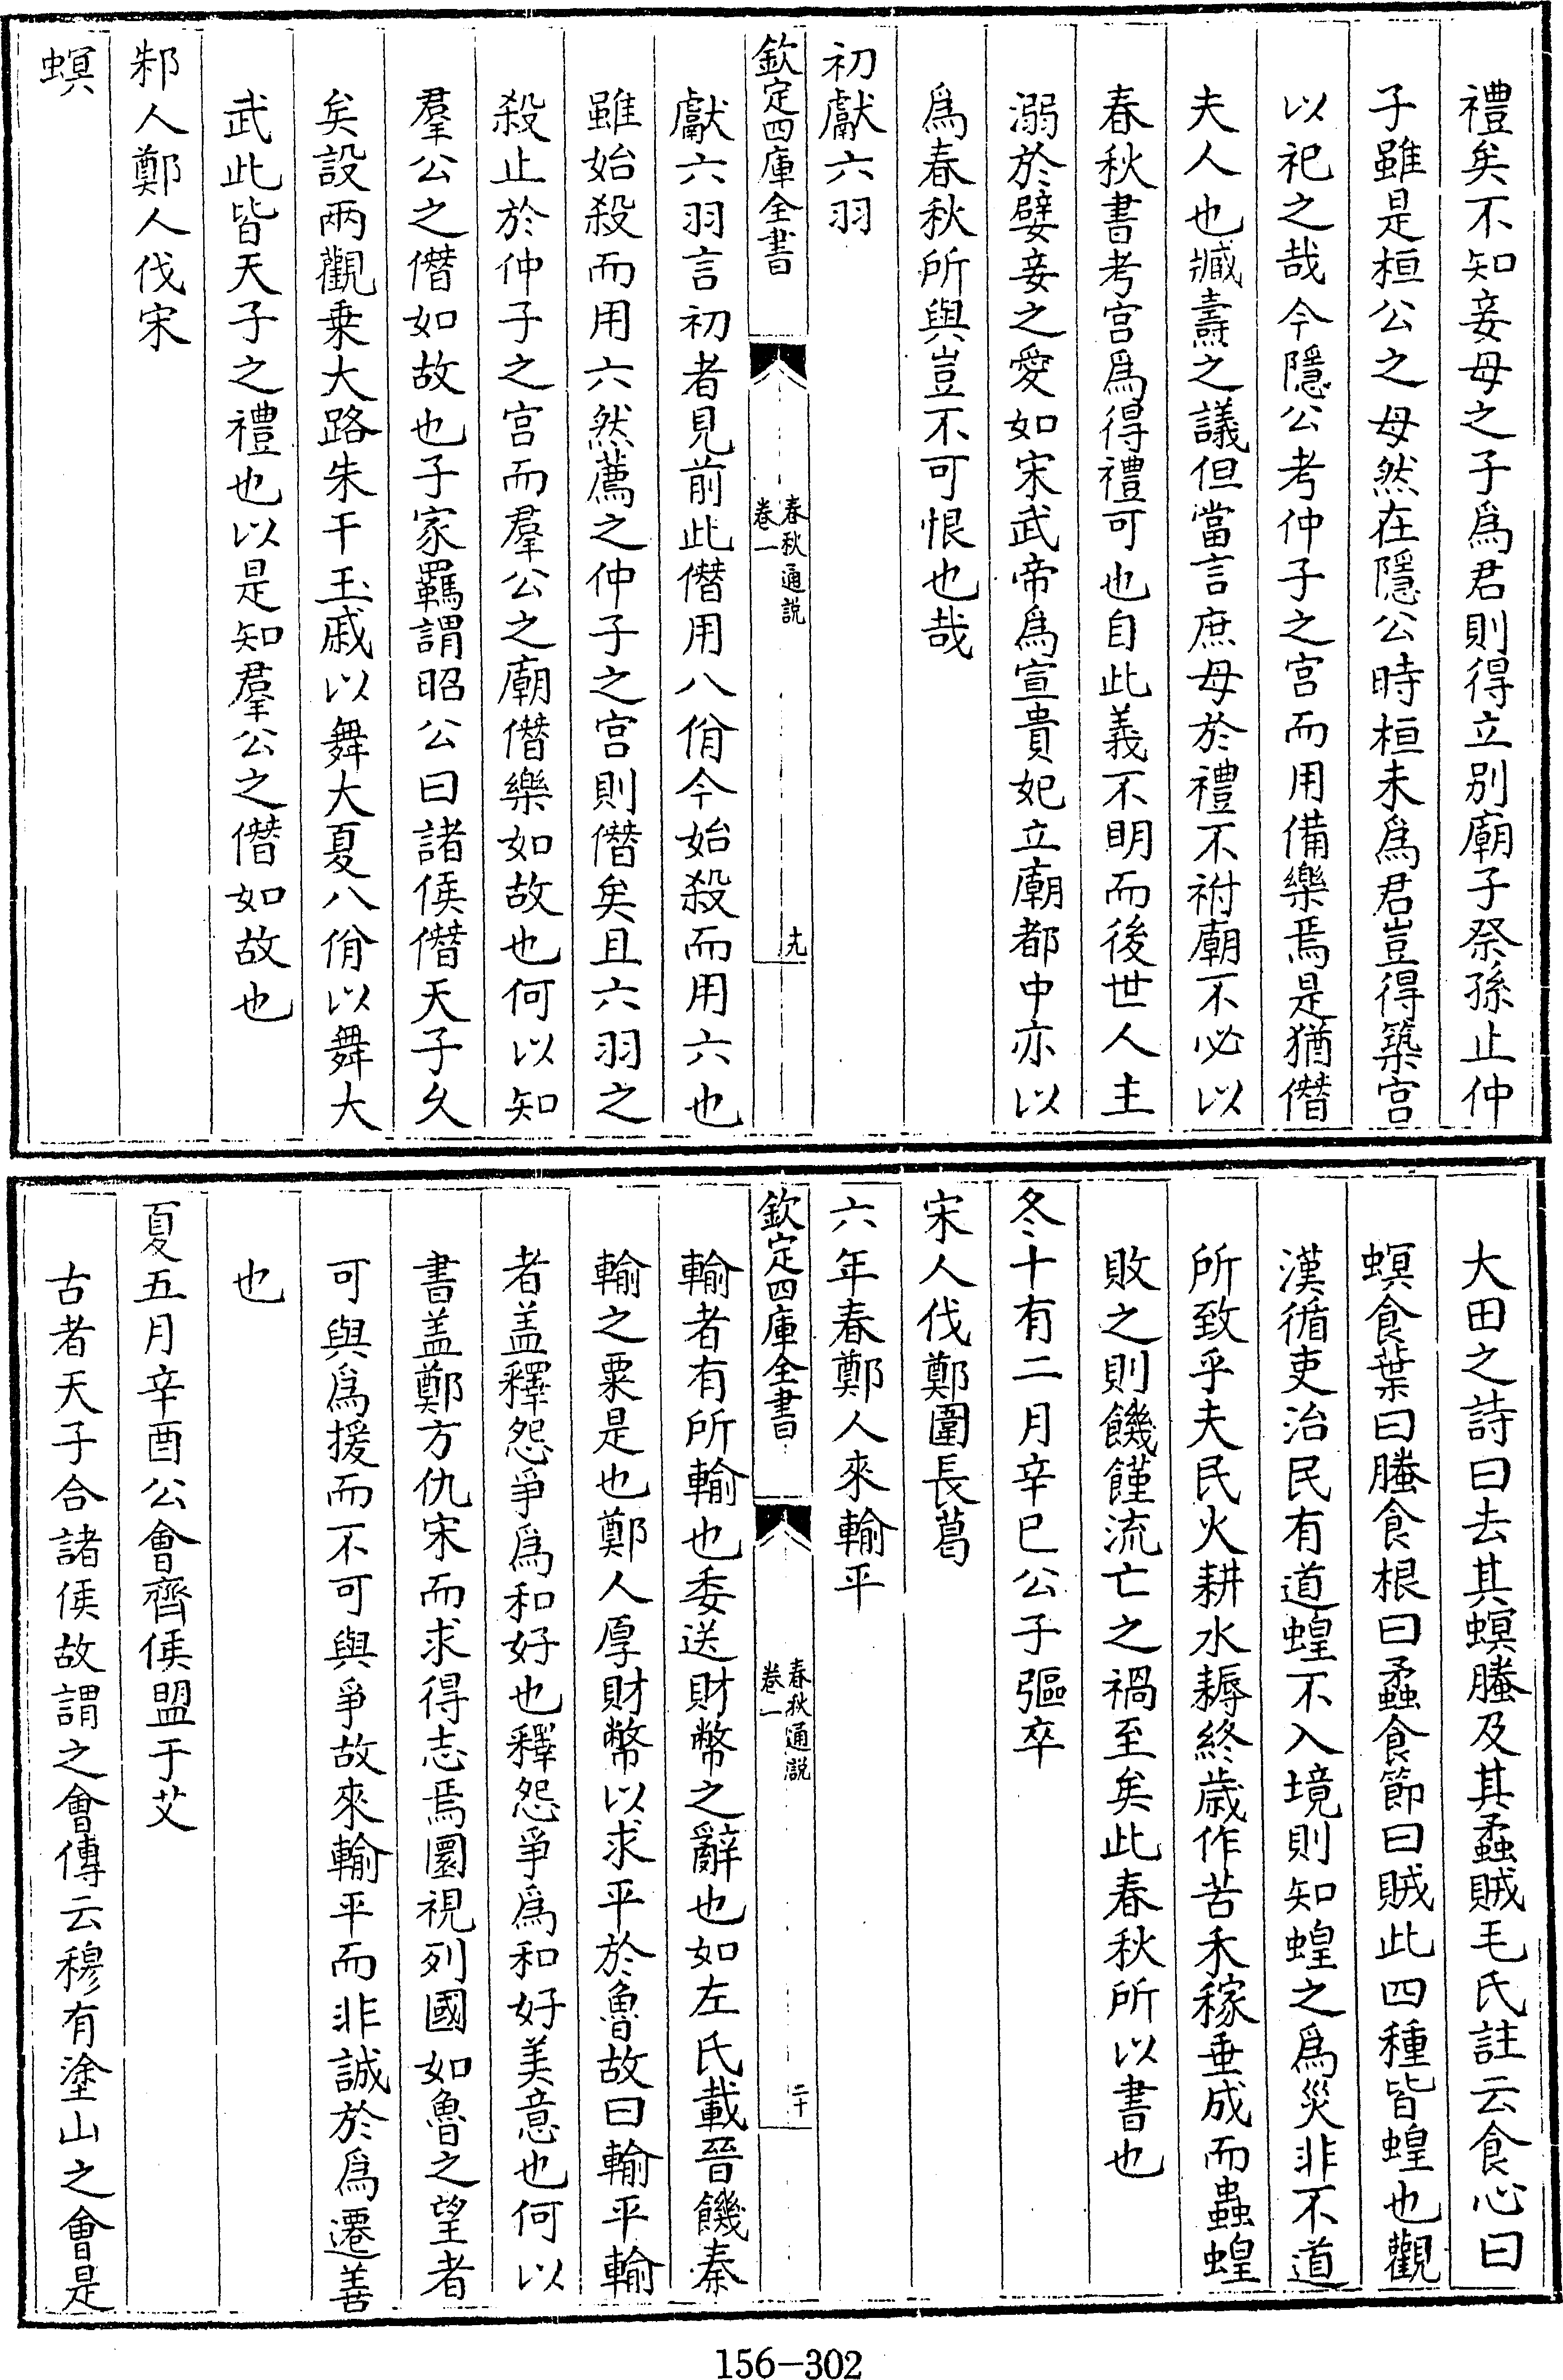 禮矣不知妾母之子爲君則得立別廟子祭孫止仲
子雖是桓公之母然在隱公時桓未爲君豈得築宫
以祀之哉今隱公考仲子之宫而用備樂焉是猶僭
夫人也臧燾之議但當言庶母於禮不祔廟不必以
春秋書考宫爲得禮可也自此義不明而後世人主
溺於嬖妾之愛如宋武帝爲宣貴妃立廟都中亦以
爲春秋所與豈不可恨也哉
初獻六羽
欽定四庫全書
春秋通説
卷一
十九
獻六羽言初者見前此僭用八佾今始殺而用六也
雖始殺而用六然薦之仲子之宫則僭矣且六羽之
殺止於仲子之宫而羣公之廟僭樂如故也何以知
羣公之僭如故也子家羈謂昭公曰諸侯僭天子久
矣設兩觀乗大路朱干玉戚以舞大夏八佾以舞大
武此皆天子之禮也以是知羣公之僭如故也
邾人鄭人伐宋
螟
大田之詩曰去其螟螣及其蟊賊毛氏註云食心曰
螟食葉曰螣食根曰蟊食節曰賊此四種皆蝗也觀
漢循吏治民有道蝗不入境則知蝗之爲災非不道
所致乎夫民火耕水耨終歳作苦禾稼垂成而蟲蝗
敗之則饑饉流亡之禍至矣此春秋所以書也
冬十有二月辛巳公子彄卒
宋人伐鄭圍長葛
六年春鄭人來輸平
欽定四庫全書
春秋通説
卷一
二十
輸者有所輸也委送財幣之辭也如左氏載晉饑秦
輸之粟是也鄭人厚財幣以求平於魯故曰輸平輸
者盖釋怨爭爲和好也釋怨爭爲和好美意也何以
書盖鄭方仇宋而求得志焉圜視列國如魯之望者
可與爲援而不可與爭故來輸平而非誠於爲遷善
也
夏五月辛酉公會齊侯盟于艾
古者天子合諸侯故謂之會傳云穆有塗山之會是
156-302